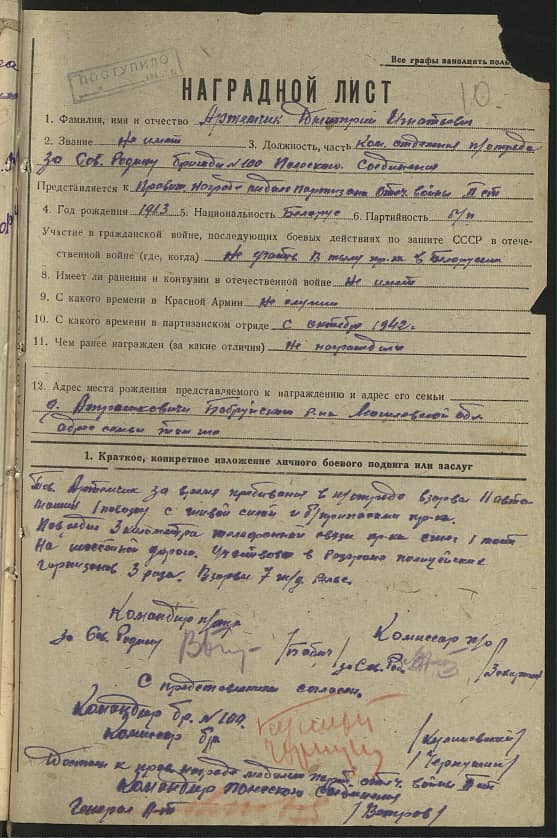 10.
Все графы заполнять
ПОСТУПИЛО
НАГРАДНОЙ ЛИСТ
1. Фамилия, имя и отчество Артемчик Дмитрий Игнатьевич
2. Звание не имеет 3. Должность, часть Ком. отделения п/отряда
за Сов. Родину бригады №100 Полеского Соединения
Представляется к Правит. награде медаль Партизана Отеч. войны II ст
4. Год рождения 1913 5. Национальность Беларус 6. Партийность б/п
Участие в гражданской войне, последующих боевых действиях по защите СССР в отече-
ственной войне (где, когда) Не участв. В тылу пр-ка в Белоруссии
8. Имеет ли ранения и контузии в отечественной войне Не имеет
9. С какого времени в Красной Армии Не служил
10. С какого времени в партизанском отряде С октября 1942г.
11. Чем ранее награжден (за какие отличия) Не награждался
12. Адрес места рождения представляемого к награждению и адрес его семьи
Бобруйского р-на Могилевской обл.
Адрес семьи там же
1. Краткое, конкретное изложение личного боевого подвига или заслуг
Тов. Артемчик за время пребывания в п/отряде взорвал II авто
машин 1 повозку с живой силой и б/припасами пр-ка.
3 километра телефонной связи пр-ка сжег 1 мост
на шоссейной дороге. Участвовал в разгроме полицейских
гарнизонов 3 раза. Взорвал 7 ж/д рельс.
Командир п/отр
за Сов. Родину /Бабич/
Комиссар п/о
за Сов. Род.
С представлением согласен.
Командир бр. №100
Комиссар бр
Достоин к прав. награде медалью парт. отеч. войны II ст
Командир Полеского Соединения
Генерал М-р /Ветров/